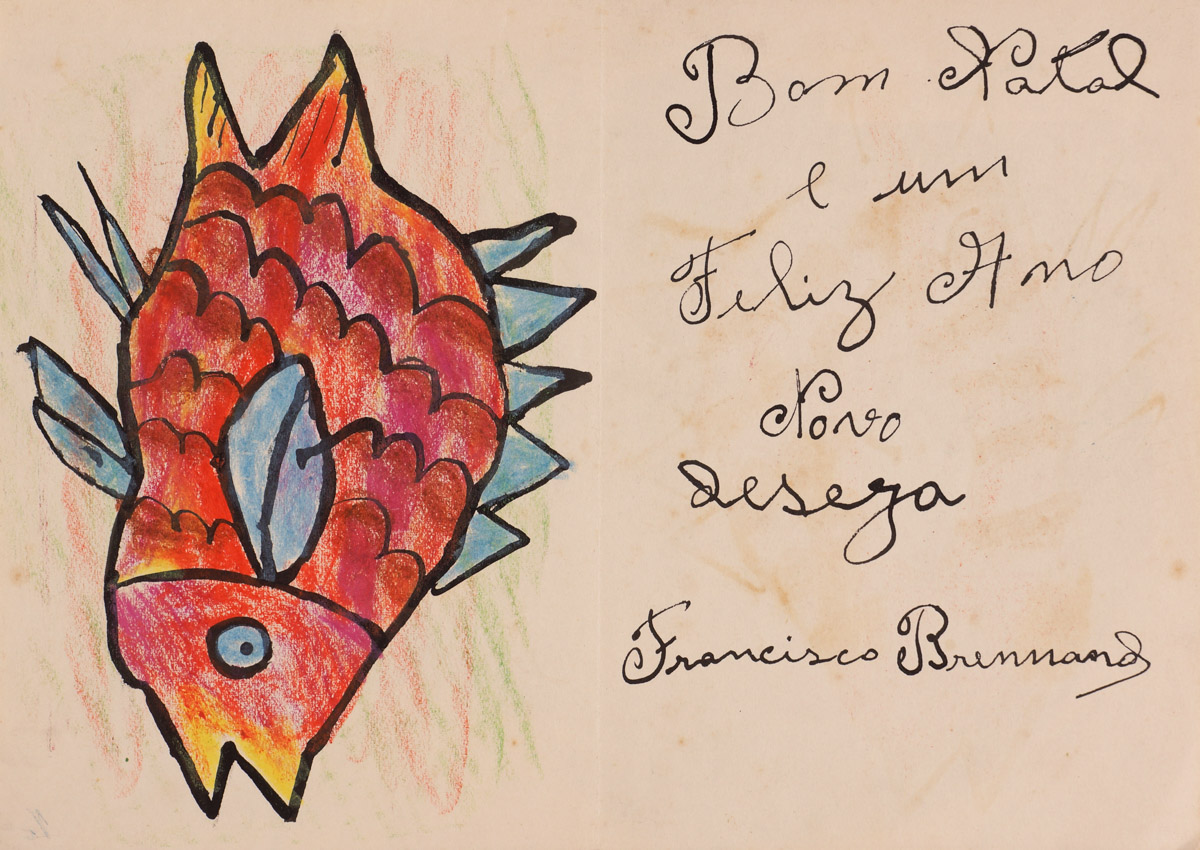 Bom Natal
e um
Feliz Ano
Novo
deseja
Francisco Brennand